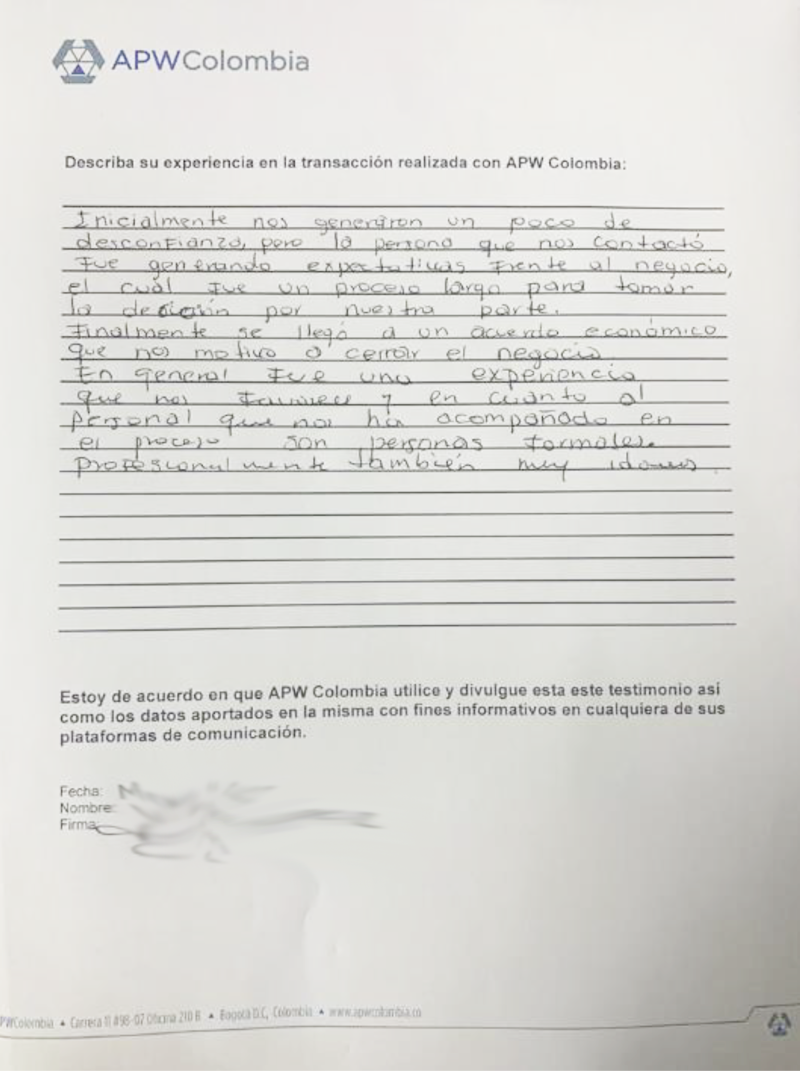 APWColombia
Describa su experiencia en la transacción realizada con APW Colombia:
Inicialmente nos generaron un poco de
desconfianza, pero la persona que nos contactó
fue generando expectativas frente al negocio,
el cual fue un proceso largo para tomar
la decisión por nuestra parte.
Finalmente se llegó a un acuerdo económico
que nos motivo a cerrar el negocio
En general fue una experiencia
que nos y en cuanto al
personal que nos ha acompañado en
el proceso son personas formales.
profesionalmente también muy
Estoy de acuerdo en que APW Colombia utilice y divulgue esta este testimonio así
como los datos aportados en la misma con fines informativos en cualquiera de sus
plataformas de comunicación.
Fecha:
Nombre:
Firma:
PWColombia ▲ Carrera 11 #98-07 Oficina 210 B ▲ Bogotá D.C, Colombia ▲ www.apwcolombia.co